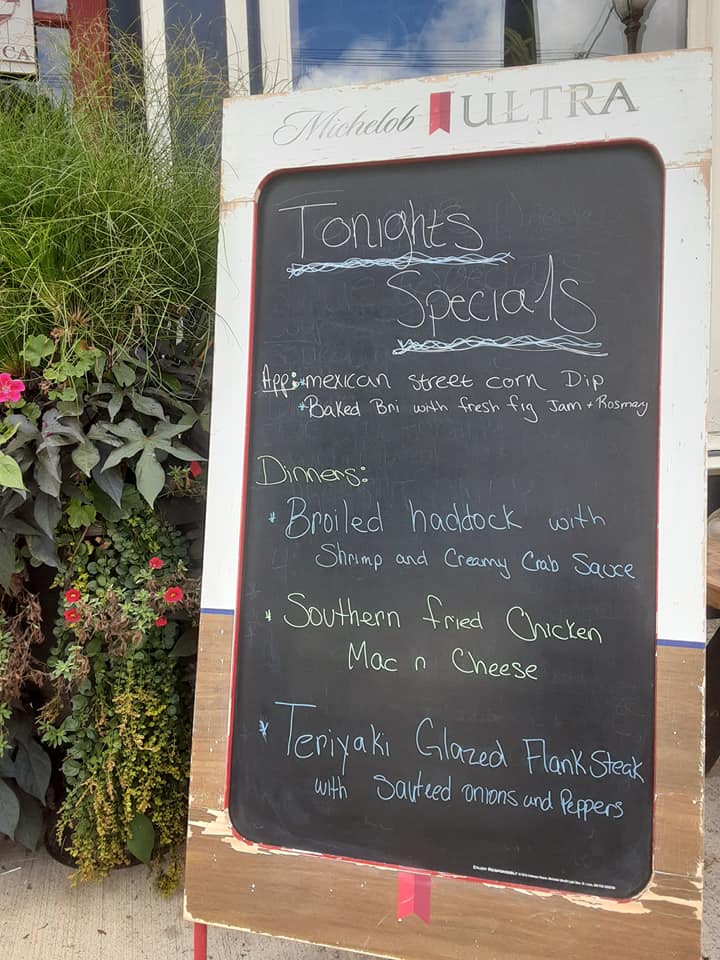 CA
Michelob ULTRA
Tonights
Specials
App: *mexican street corn Dip
*Baked Bri with fresh fig Jam + Rosmary
Dinners:
* Broiled haddock with
Shrimp and Creamy Crab Sauce
* Southern fried Chicken
Mac n Cheese
* Teriyaki Glazed Flank Steak
with Sauteed onions and Peppers
ENJOY RESPONSIBLY